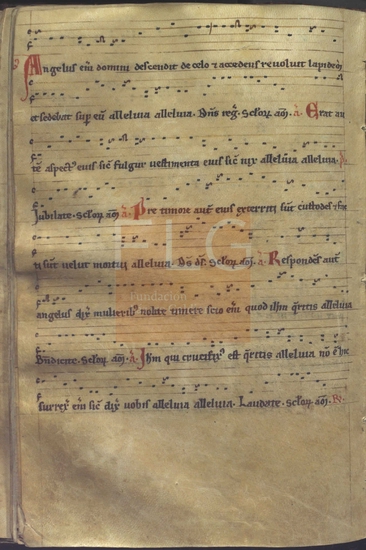 Angelus eni domini descendit de celo ⁊ accedens revoluit lapidem
et sedebat sup eu alleluia alleluia. Dns reg. Sclorz aoz. a. Erat au
te aspect eius sic fulgur vestimenta eius sic nix alleluia alleluia. ps.
Jubilate. Sclorz aoz a. Pre timore aut eius exterriti sut custodes ⁊ fac
ti sut velut mortui alleluia. Ds ds. Sclorz aoz. a. Respondes aut
angelus dix mulierib nolite timere scio eni quod ihm qritis alleluia
Bndicite. Sclorz aoz. a. Ihm qui crucifix est qritis alleluia no e hic
surrex eni sic dix vobis alleluia alleluia. Laudate. Sclorz aoz. R.
FLG
Fundación